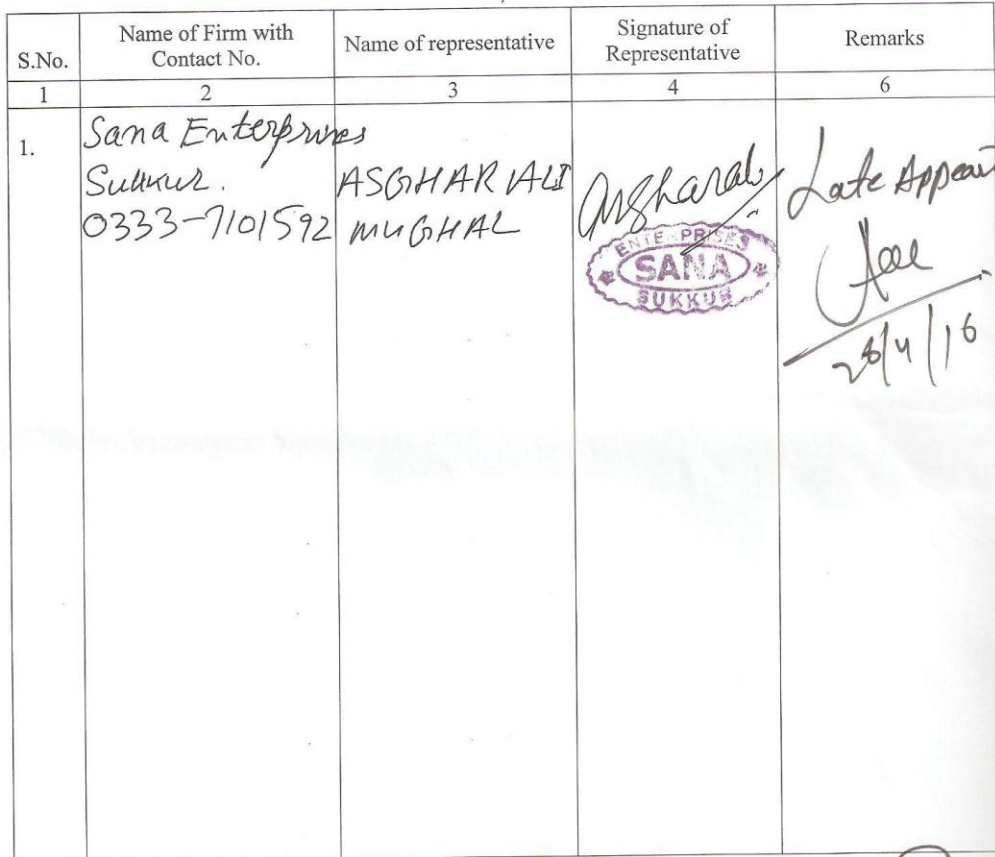 S.No.
Name of Firm with
Contact No.
Name of representative
Signature of
Representative
Remarks
1
2
3
4
6
1.
Sana Enterprises
Sukkur.
0333-7101592
ASGHAR ALI
MUGHAL
Asgharali
ENTERPRISES
SANA
SUKKUR
Late Appear
28/4/16